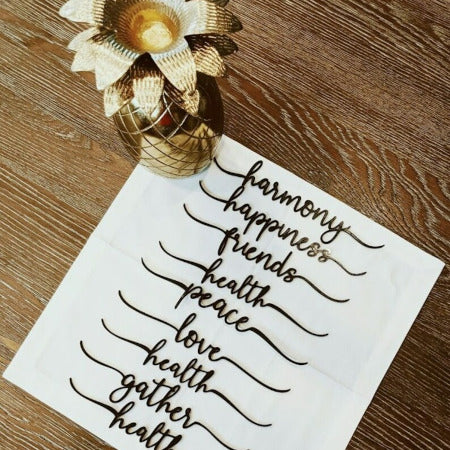 harmony
happiness
friends
health
peace
love
health
gather
health